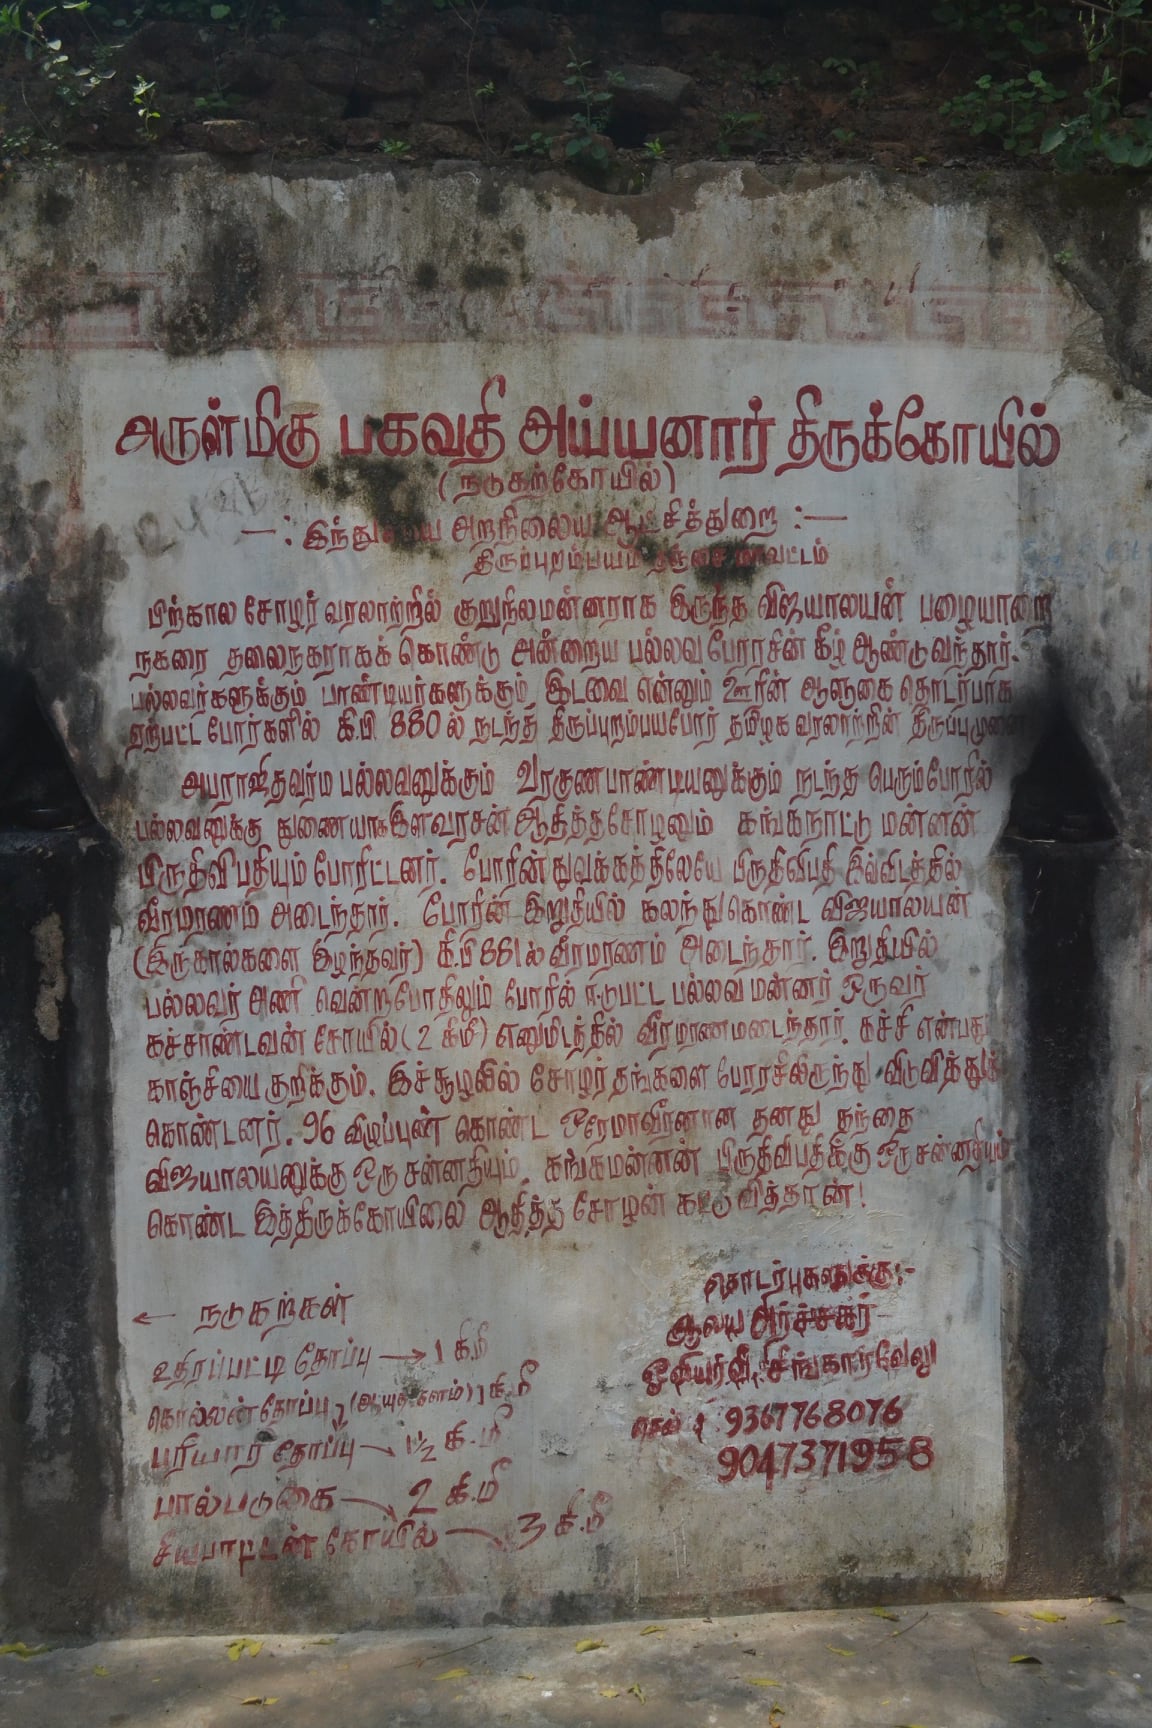 அருள்மிகு பகவதி அய்யனார் திருக்கோயில்
(நடுகற்கோயில்)
—: இந்து அறநிலைய ஆட்சித்துறை :—
திருப்புறம்பயம் தஞ்சை மாவட்டம்
பிற்கால சோழர் வரலாற்றில் குறுநிலமன்னராக இருந்த விஜயாலயன் பழையாறை
நகரை தலைநகராகக் கொண்டு அன்றைய பல்லவ பேரரசின் கீழ் ஆண்டு வந்தார்.
பல்லவர்களுக்கும் பாண்டியர்களுக்கும் இடவை என்னும் ஊரின் ஆளுகை தொடர்பாக
ஏற்பட்ட போர்களில் கி.பி 880 ல் நடந்த திருப்புறம்பயபோர் தமிழக வரலாற்றின் திருப்புமுனை
அபராஜிதவர்ம பல்லவனுக்கும் வரகுணபாண்டியனுக்கும் நடந்த பெரும்போரில்
பல்லவனுக்கு துணையாக இளவரசன் ஆதித்தசோழனும் கங்கநாட்டு மன்னன்
பிருதிவிபதியும் போரிட்டனர். போரின் துவக்கத்திலேயே பிருதிவிபதி இவ்விடத்தில்
வீரமரணம் அடைந்தார். போரின் இறுதியில் கலந்துகொண்ட விஜயாலயன்
(இருகால்களை இழந்தவர்) கி.பி 881 ல் வீரமரணம் அடைந்தார். இறுதியில்
பல்லவர் அணி வென்றபோதிலும் போரில் ஈடுபட்ட பல்லவ மன்னர் ஒருவர்
கச்சாண்டவன் கோயில் (2 கிமீ) எனுமிடத்தில் வீரமரணமடைந்தார். கச்சி என்பது
காஞ்சியை குறிக்கும். இச்சூழலில் சோழர் தங்களை பேரரசிலிருந்து விடுவித்துக்
கொண்டனர். 96 விழுப்புண் கொண்ட ஒரேமாவீரனான தனது தந்தை
விஜயாலயனுக்கு ஒரு சன்னதியும். கங்கமன்னன் பிருதிவிபதிக்கு ஒரு சன்னதியும்
கொண்ட இத்திருக்கோயிலை ஆதித்த சோழன் கட்டுவித்தான்!
← நடுகற்கள்
உதிரப்பட்டி தோப்பு → 1 கி.மீ
கொல்லன்தோப்பு → (ஆயுத களம்) 1 கி.மீ
பரியார் தோப்பு → 1½ கி.மீ
பால்படுகை → 2 கி.மீ
கோயில் → 3 கி.மீ
தொடர்புகளுக்கு:-
ஆலய அர்ச்சகர்
ஓவியர் வீ. சிங்காரவேலு
செல் : 9367768076
9047371958